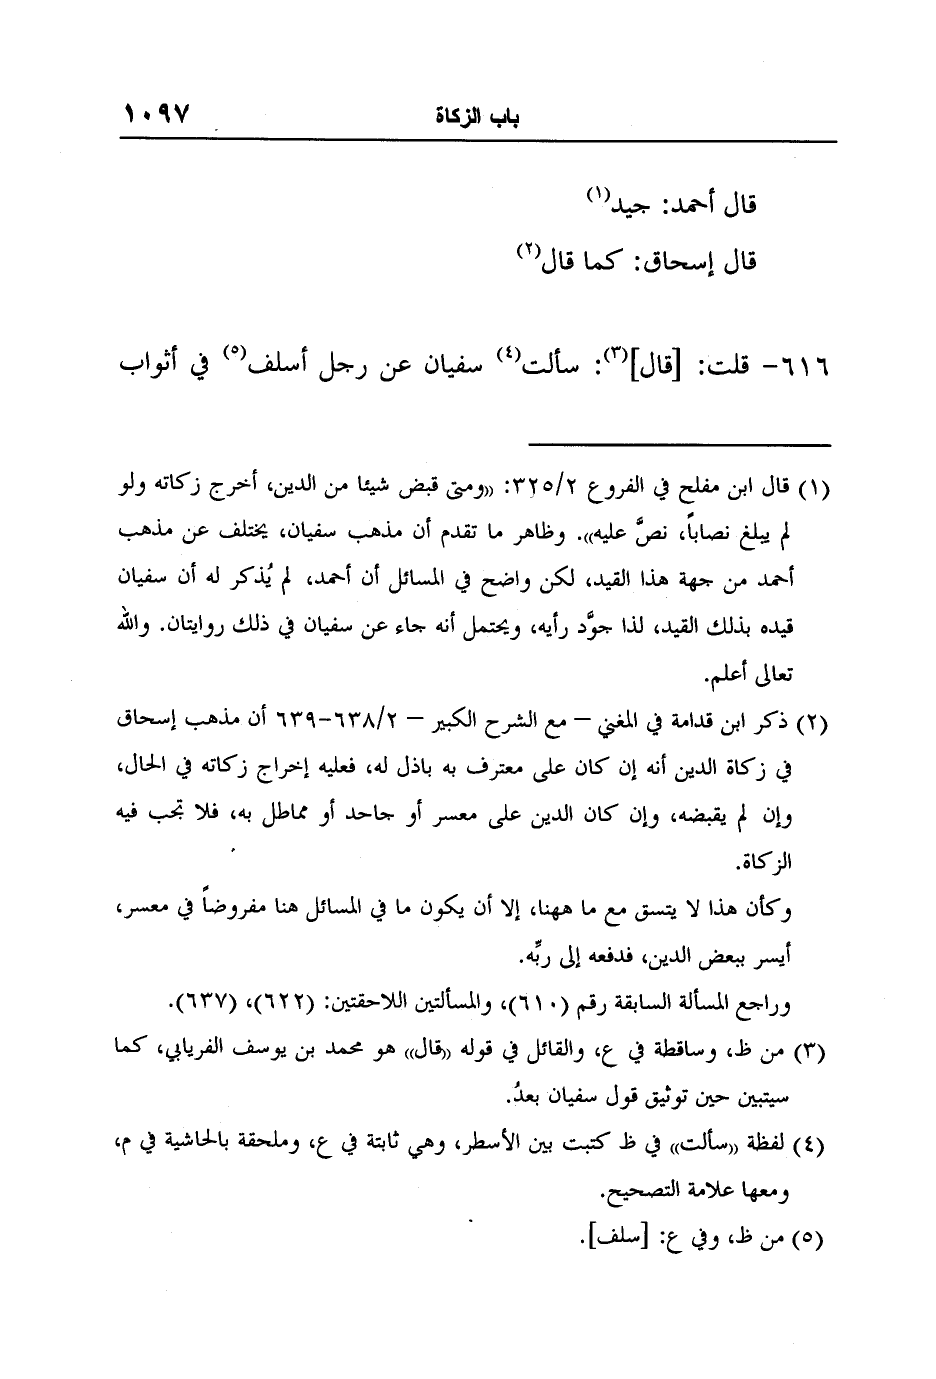 باب الزكاة ١٠٩٧
قال أحمد: جيد(١)
قال إسحاق: كما قال(٢)
٦١٦- قلت: [قال](٣): سألت(٤) سفيان عن رجل أسلف(٥) في أثواب
(١) قال ابن مفلح في الفروع ٣٢٥/٢: «ومتى قبض شيئا من الدين، أخرج زكاته ولو
لم يبلغ نصاباً، نصَّ عليه». وظاهر ما تقدم أن مذهب سفيان، يختلف عن مذهب
أحمد من جهة هذا القيد، لكن واضح في المسائل أن أحمد، لم يُذكر له أن سفيان
قيده بذلك القيد، لذا جوَّد رأيه، ويحتمل أنه جاء عن سفيان في ذلك روايتان. والله
تعالى أعلم.
(٢) ذكر ابن قدامة في المغني – مع الشرح الكبير – ٦٣٨/٢-٦٣٩ أن مذهب إسحاق
في زكاة الدين أنه إن كان على معترف به باذل له، فعليه إخراج زكاته في الحال،
وإن لم يقبضه، وإن كان الدين على معسر أو جاحد أو مماطل به، فلا تجب فيه
الزكاة.
وكأن هذا لا يتسق مع ما ههنا، إلا أن يكون ما في المسائل هنا مفروضاً في معسر،
أيسر ببعض الدين، فدفعه إلى ربِّه.
وراجع المسألة السابقة رقم (٦١٠)، والمسألتين اللاحقتين: (٦٢٢)، (٦٣٧).
(٣) من ظ، وساقطة في ع، والقائل في قوله «قال» هو محمد بن يوسف الفريابي، كما
سيتبين حين توثيق قول سفيان بعدُ.
(٤) لفظة «سألت» في ظ كتبت بين الأسطر، وهي ثابتة في ع، وملحقة بالحاشية في م،
ومعها علامة التصحيح.
(٥) من ظ، وفي ع: [سلف].